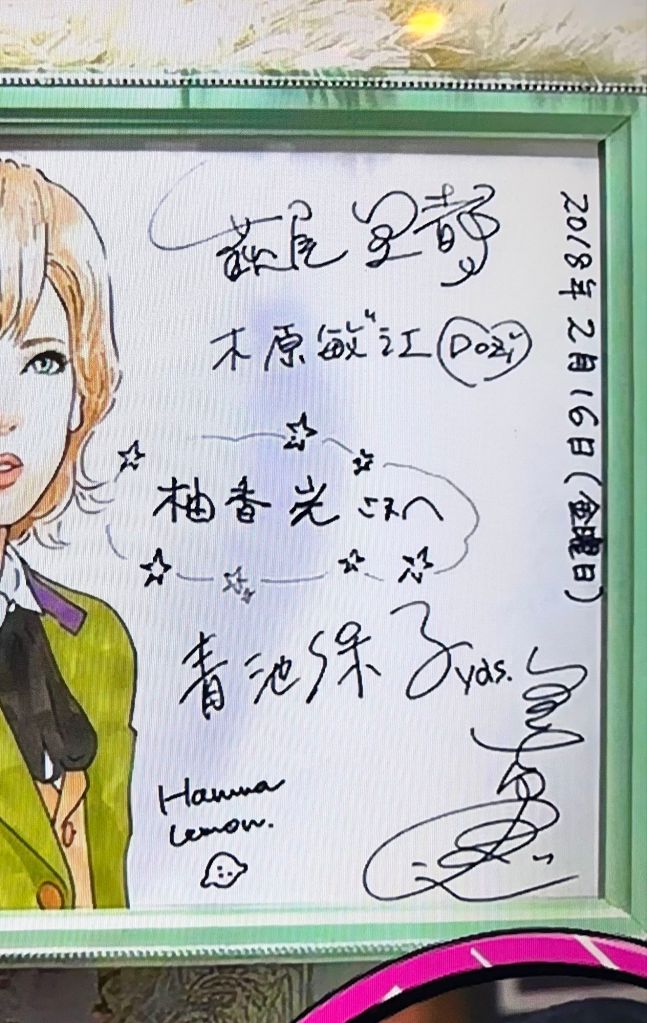 2018年2月16日(金曜日)
萩尾望都
木原敏江 Dozi
柚香光さんへ
青池保子
yds.
Hanna
Lemon.